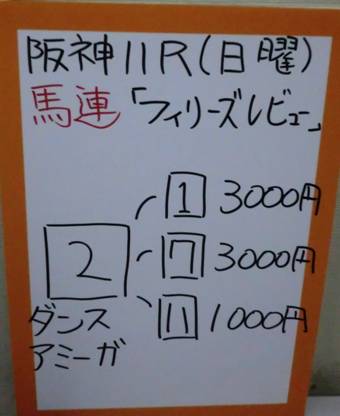 阪神11R(日曜)
馬連「フィリーズレビュー」
1 3000円
2 7 3000円
11 1000円
ダンス
アミーガ